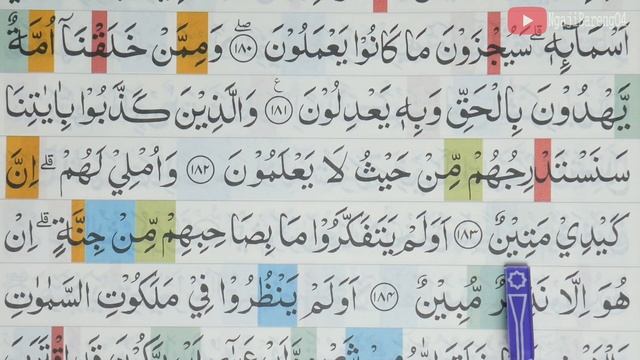 NgajiBareng04
اَسْمَاۤىِٕهٖۗ سَيُجْزَوْنَ مَا كَانُوْا يَعْمَلُوْنَ ۖ ١٨٠ وَمِمَّنْ خَلَقْنَآ اُمَّةٌ
يَّهْدُوْنَ بِالْحَقِّ وَبِهٖ يَعْدِلُوْنَ ࣖ ١٨١ وَالَّذِيْنَ كَذَّبُوْا بِاٰيٰتِنَا
سَنَسْتَدْرِجُهُمْ مِّنْ حَيْثُ لَا يَعْلَمُوْنَ ١٨٢ وَاُمْلِيْ لَهُمْ ۗاِنَّ
كَيْدِيْ مَتِيْنٌ ١٨٣ اَوَلَمْ يَتَفَكَّرُوْا مَا بِصَاحِبِهِمْ مِّنْ جِنَّةٍ ۗاِنْ
هُوَ اِلَّا مُّبِيْنٌ ١٨٤ اَوَلَمْ يَنْظُرُوْا فِيْ مَلَكُوْتِ السَّمٰوٰتِ